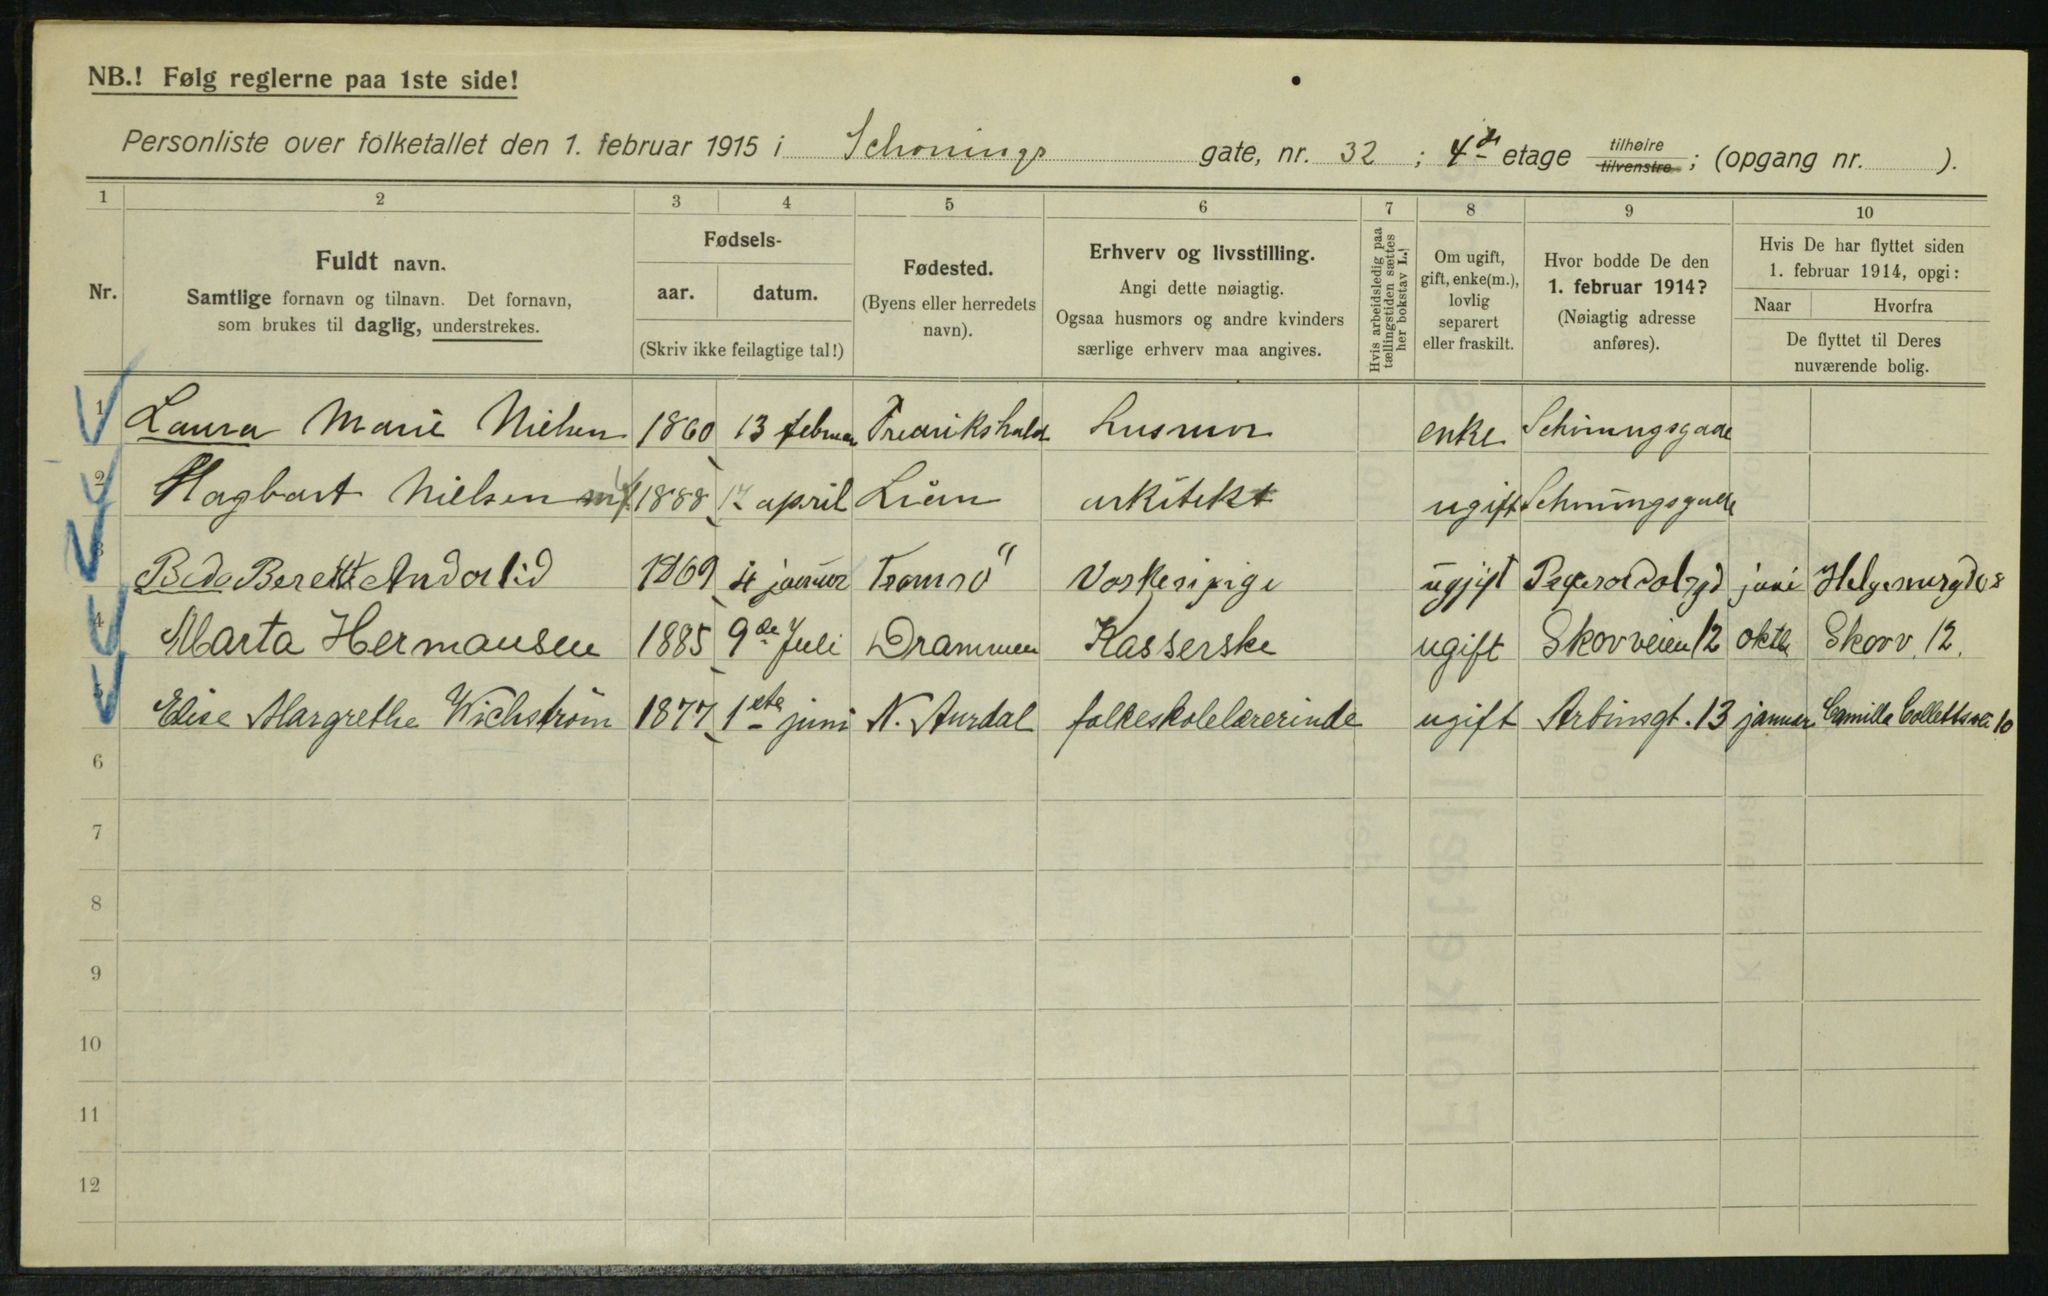 NB.! Følg reglerne paa 1ste side!
Personliste over folketallet den 1. februar 1915 i Schonings gate, nr. 32 ; 4de etage tilhøire tilvenstre ; (opgang nr. ).
1 2 3 4 5 6 7 8 9 10
Nr.
Fuldt navn.
Samtlige fornavn og tilnavn. Det fornavn,
som brukes til daglig, understrekes.
Fødsels-
aar. datum.
(Skriv ikke feilagtige tal!)
Fødested.
(Byens eller herredets
navn).
Erhverv og livsstilling.
Angi dette nøiagtig.
Ogsaa husmors og andre kvinders
særlige erhverv maa angives.
Hvis arbeidsledig paa
tællingstiden sættes
her bokstav L.!
Om ugift,
gift, enke(m.),
lovlig
separert
eller fraskilt.
Hvor bodde De den
1. februar 1914?
(Nøiagtig adresse
anføres).
Hvis De har flyttet siden
1. februar 1914, opgi:
Naar Hvorfra
De flyttet til Deres
nuværende bolig.
1 Laura Marie Nielsen 1860 13 februar Fredrikshald husmor enke Schøningsgade
2 Hagbart Nielsen 1888 17 april Lian arkitekt ugift Schøningsgade
3 Berett 1869 4 januar Tromsö ugjift juni
4 Marta Hermansen 1885 9de Juli Drammen Kasserske ugift Skovveien 12 oktb Skovv. 12.
5 Elise Margrethe Wichstrøm 1877 1ste juni N. Aurdal folkeskolelærerinde ugift Arbinsgt. 13 januar Camilla Collettsvei 10
6
7
8
9
10
11
12